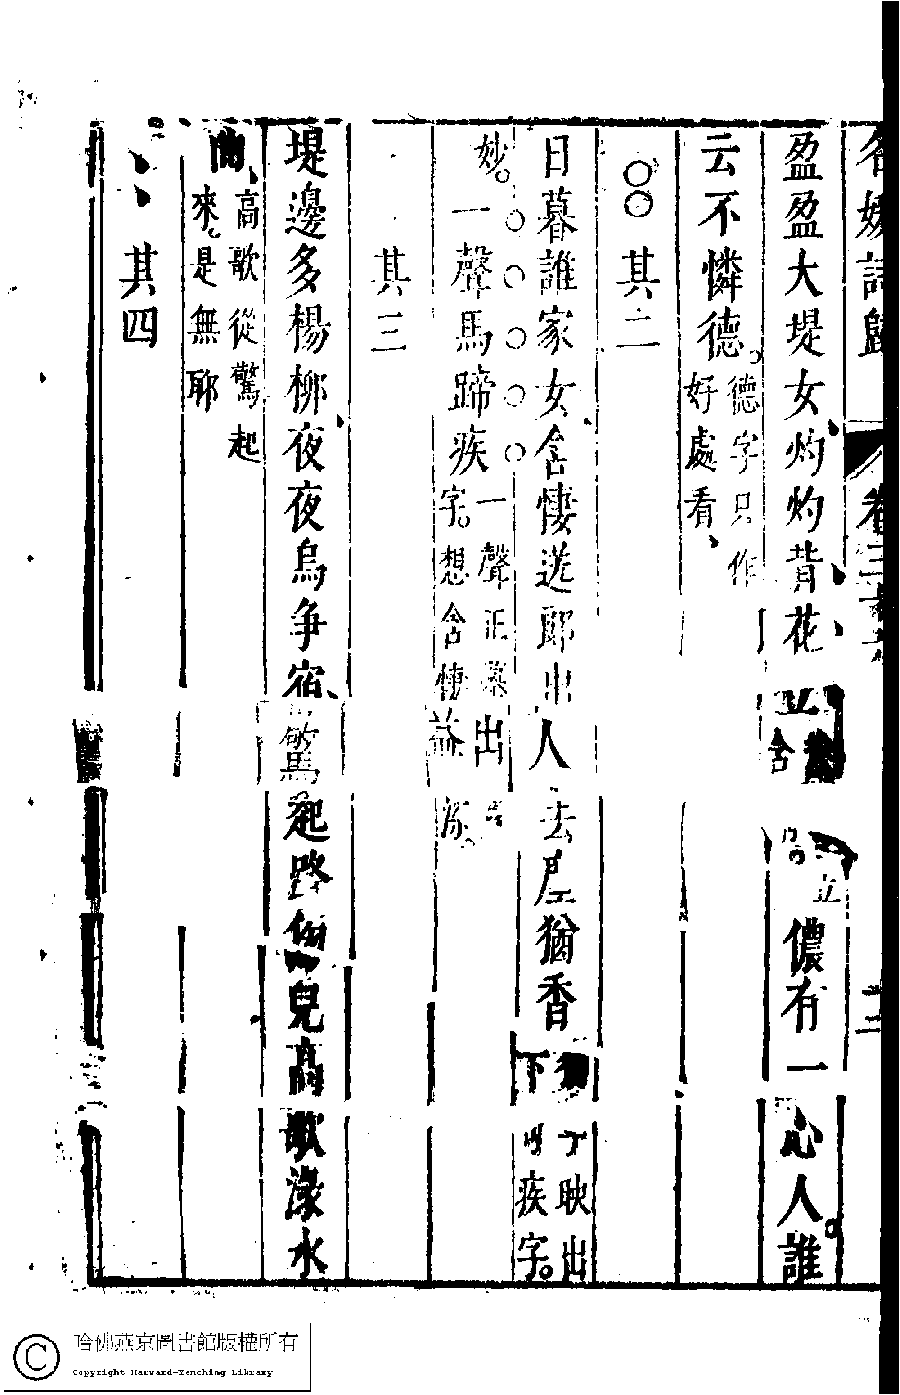 名媛詩歸 卷三
盈盈大堤女灼灼背花立 含 立 儂有一心人誰
云不憐德 德字只作好處看
其二
日暮誰家女含悽送郎出人去屋猶香 下 映出疾字
妙 一聲馬蹄疾 一聲正 出 字想含悽益
其三
堤邊多楊柳夜夜烏爭宿驚起路傍兒高歌淥水
曲 高歌從驚起來是無耶
其四
哈佛燕京圖書館版權所有
Copyright Harvard-Yenching Library